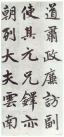 道肅政廉訪副
使其兄元鐸亦
朝列大夫雲南